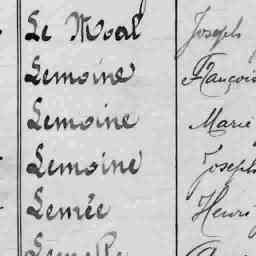 Le Moal Joseph
Lemoine François
Lemoine Marie
Lemoine Joseph
Lemée Henri